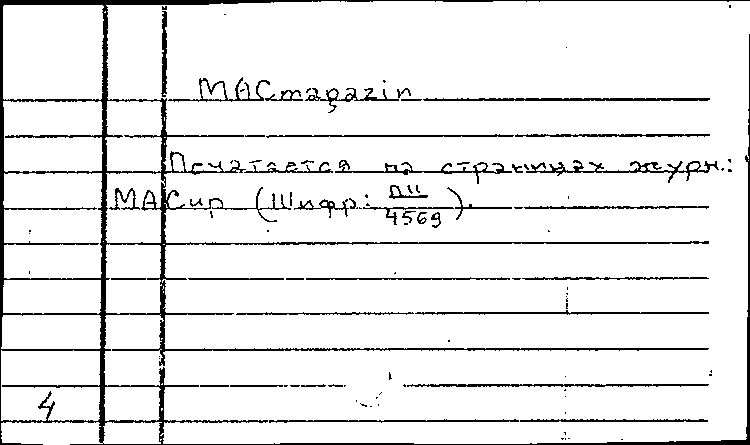 MACmagazin
Печатается на страницах журн.:
МАСир (Шифр: ПИ/4569).
4